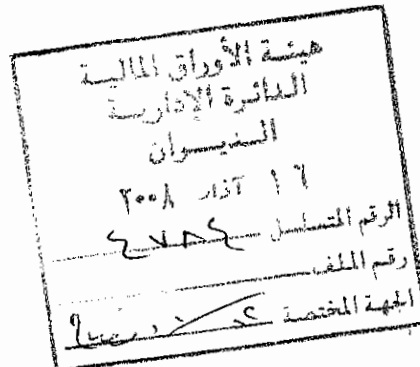 هيئة الأوراق المالية
الدائرة الإدارية
الديوان
١٦ آذار ٢٠٠٨
الرقم المتسلسل ٤٧٨٤
رقم الملف
الجهة المختصة